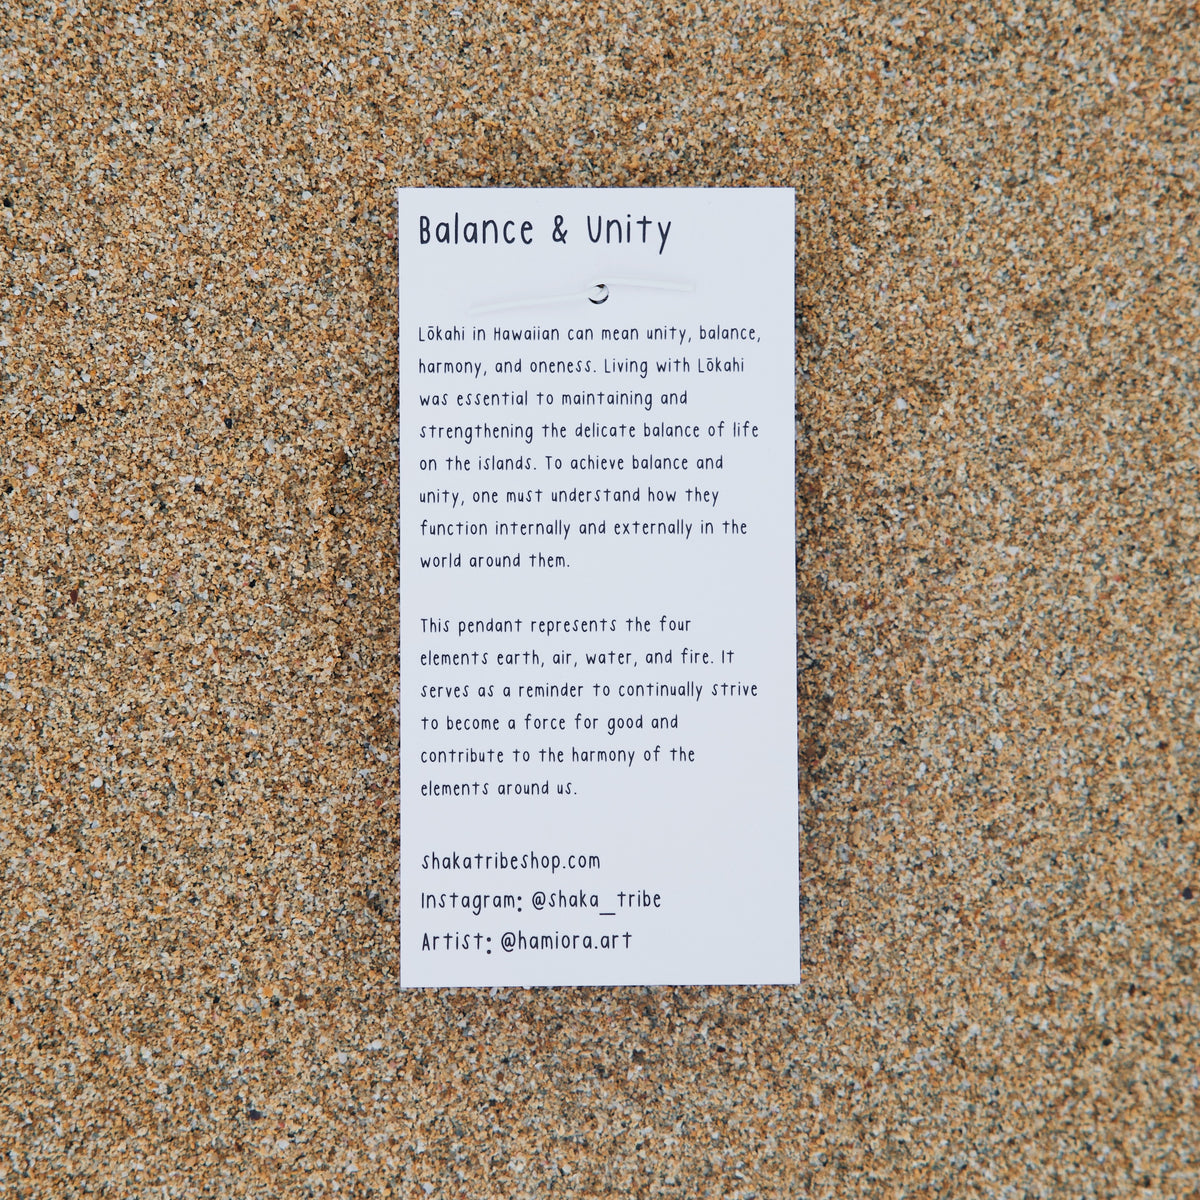 Balance & Unity
Lōkahi in Hawaiian can mean unity, balance,
harmony, and oneness. Living with Lōkahi
was essential to maintaining and
strengthening the delicate balance of life
on the islands. To achieve balance and
unity, one must understand how they
function internally and externally in the
world around them.
This pendant represents the four
elements earth, air, water, and fire. It
serves as a reminder to continually strive
to become a force for good and
contribute to the harmony of the
elements around us.
shakatribeshop.com
Instagram: @shaka_tribe
Artist: @hamiora.art